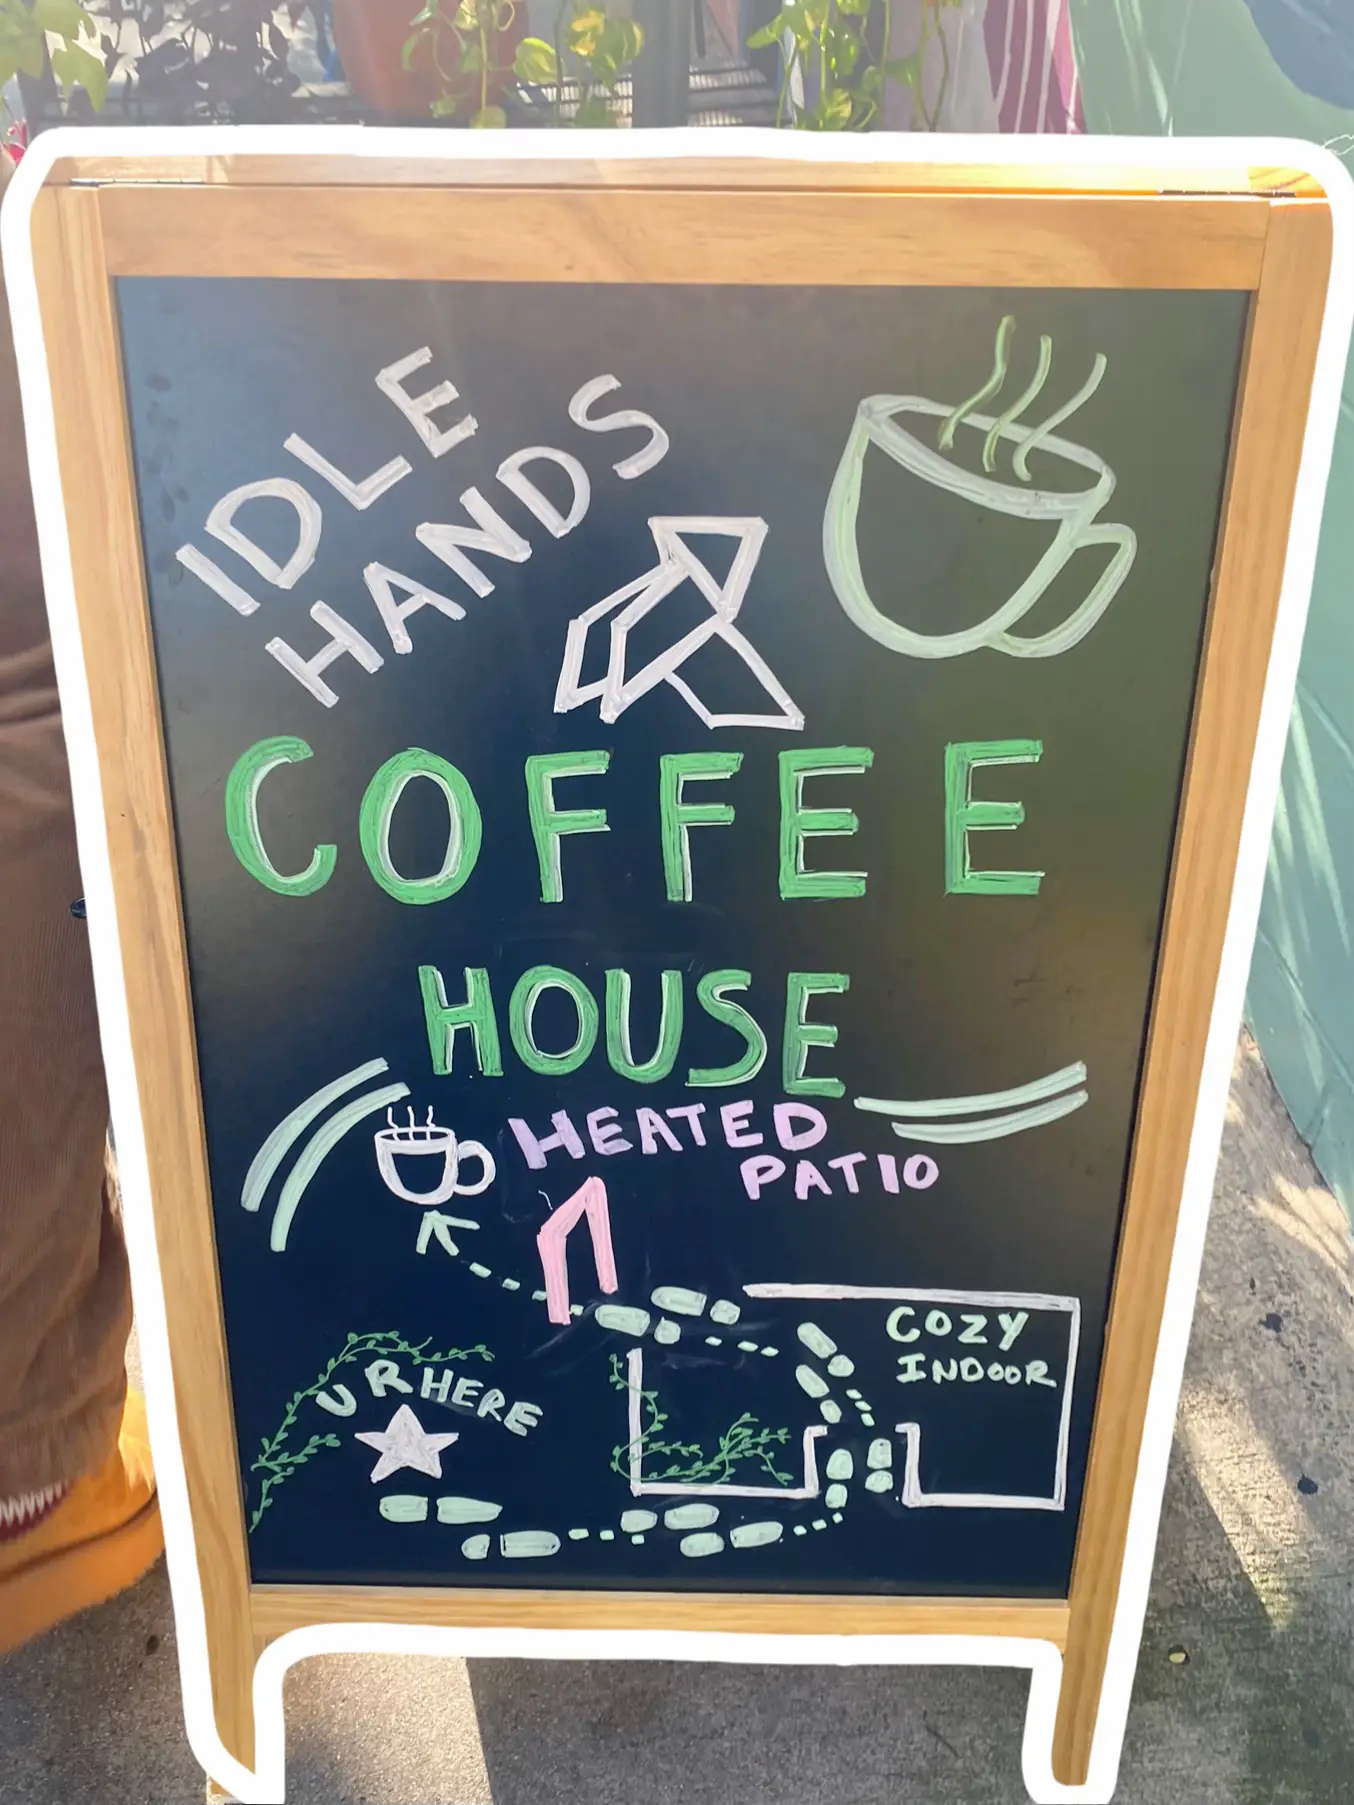 IDLE
HANDS
COFFEE
HOUSE
HEATED
PATIO
COZY
INDOOR
U R HERE